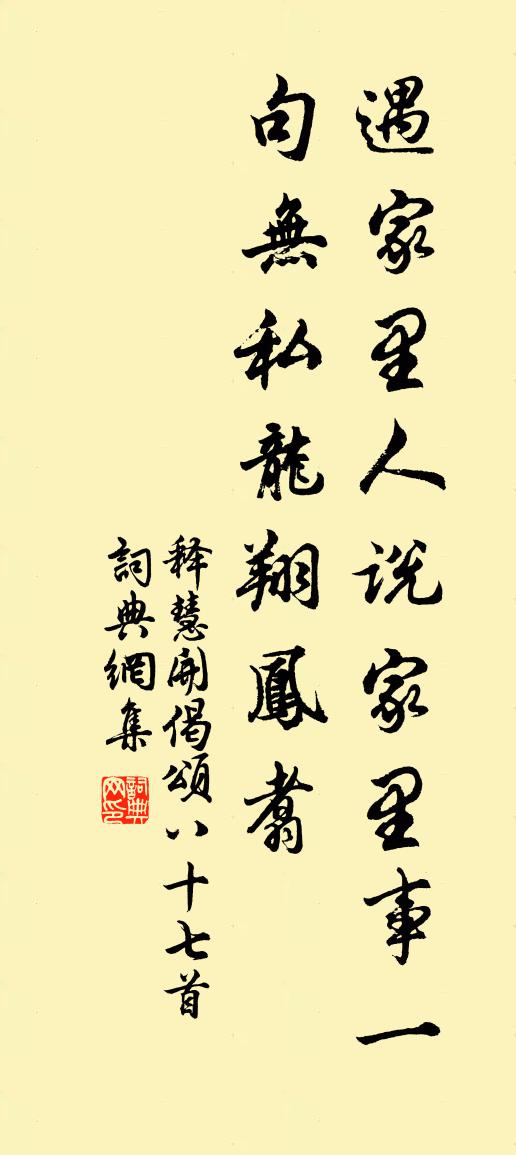 遇家里人说家里事一
句無私龍翔鳳翥
释慧開偈頌八十七首
詞典網集
詞典网印